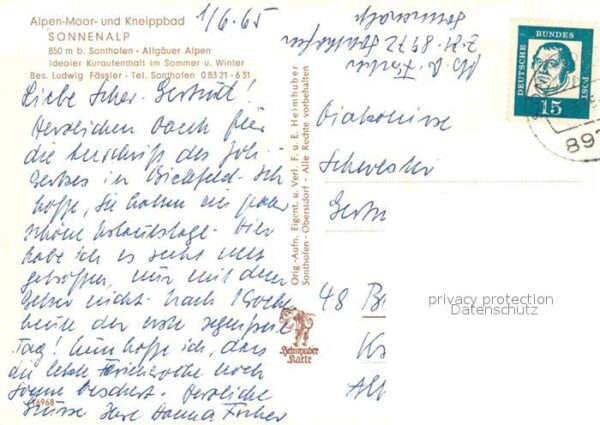 Alpen-Moor- und Kneippbad
SONNENALP
850 m b. Sonthofen - Allgäuer Alpen
Idealer Kuraufenthalt im Sommer u. Winter
Bes. Ludwig Fässler - Tel. Sonthofen 08321-631
1/6.65
Liebe Schw. Gertrud!
Herzlichen Dank für
die
in Bielefeld. Ich
hoffe, Sie hatten ein paar
schöne Urlaubstage. Hier
habe ich es sehr gut
getroffen, nur mit dem
Wetter nicht. Nach 1 Woche
heute der erste regenfreie
Tag! Nun hoffe ich, dass
die letzte Ferienwoche noch
Sonne beschert. Herzliche
Grüsse Ihre Hanna Fischer
Orig.-Aufn. Eigent. u. Verl. F. u. E. Heimhuber
Sonthofen - Oberstdorf - Alle Rechte vorbehalten
Heimhuber
Karte
Abs. Fischer
z. Zt. 8972 Sonthofen
Sonnenalp
DEUTSCHE BUNDESPOST
15
897
Diakonisse
Schwester
48
privacy protection
Datenschutz